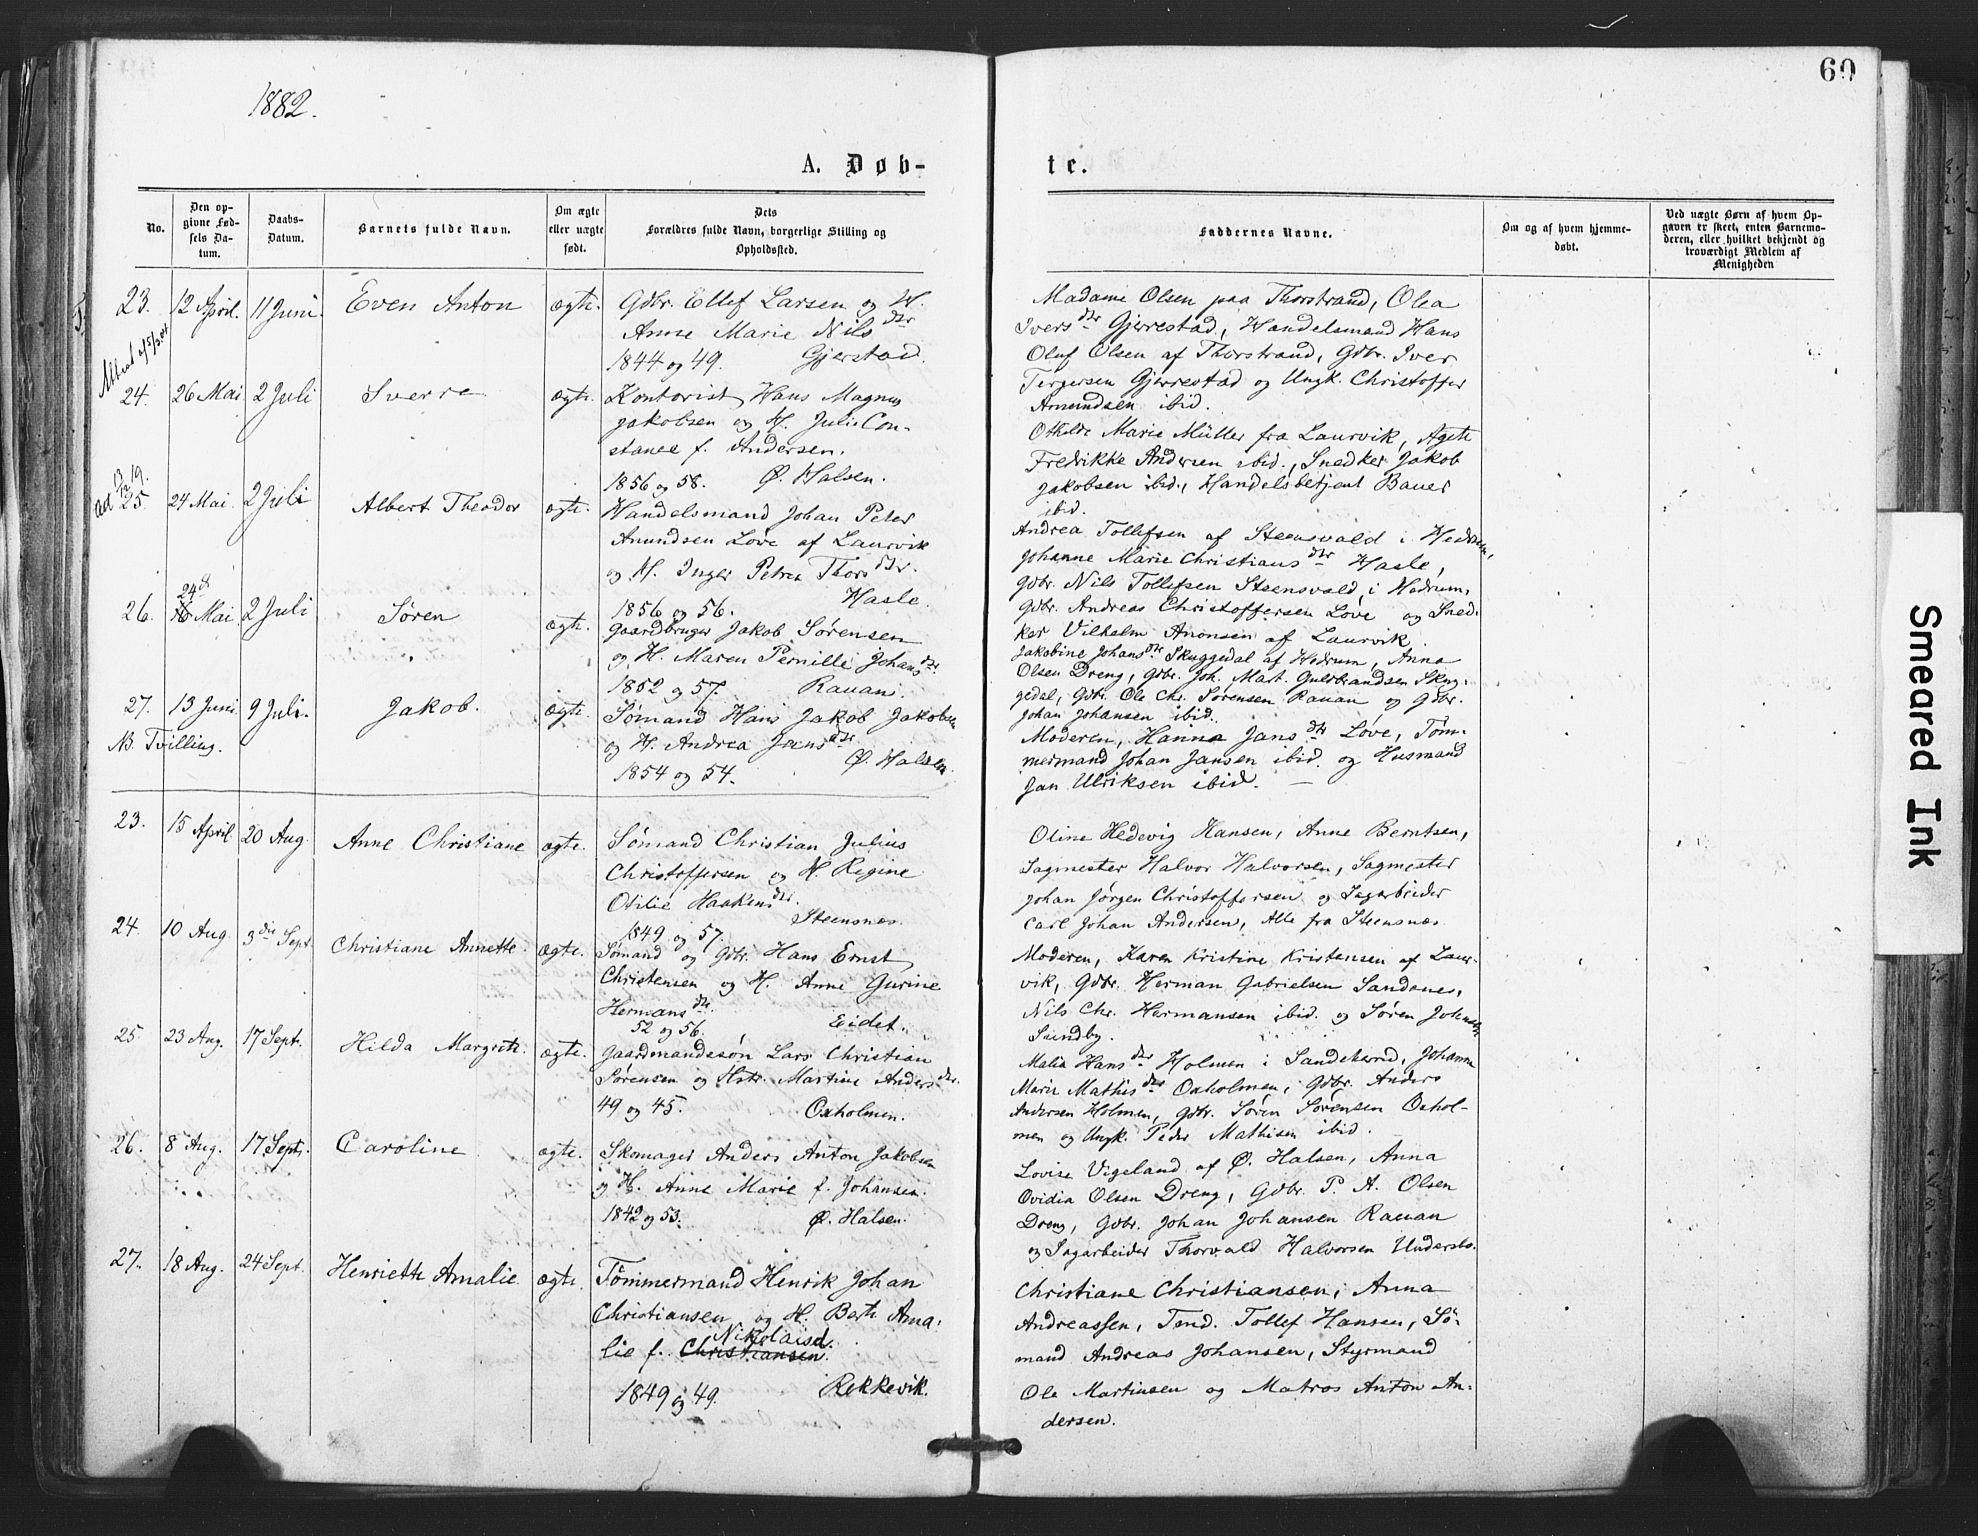 1882.
60
A. Døb-
te.
No.
Den op-
givne Fød-
sels Da-
tum.
Daabs-
Datum.
Barnets fulde Navn.
Om ægte
eller uægte
født.
Dets
Forældres fulde Navn, borgerlige Stilling og
Opholdssted.
Faddernes Navne.
Om og af hvem hjemme-
døbt.
Ved uægte Børn af hvem Op-
gaven er skeet, enten Barnemo-
deren, eller hvilket bekjendt og
troværdigt Medlem af
Menigheden
23. 12 April. 11 Juni. Even Anton ægte. Gdbr. Ellef Larsen og H.
Anne Marie Nilsdtr
1844 og 49. Gjerstad.
Madame Olsen paa Thorstrand, Olea
Iversdtr Gjerrestad, Handelsmand Hans
Oluf Olsen af Thorstrand, Gdbr. Iver
Tergersen Gjerrestad og Ungk. Christoffer
Amundsen ibid.
Attest af 5/3 04
24. 26 Mai 2 Juli Sverre ægte. Kontorist Hans Magnus
Jakobsen og H. Julie Con-
stance f. Andersen.
1856 og 58. Ø. Halsen.
Othilde Marie Müller fra Laurvik, Agate
Fredrikke Andersen ibid., Snedker Jakob
Jakobsen ibid., Handelsbetjent Bauer
ibid.
Att 13/12 19.
25. 24 Mai 2 Juli Albert Theodor ægte. Handelsmand Johan Peter
Anundsen Løve af Laurvik
og H. Inger Petrea Thorsdtr.
1856 og 56. Hasle.
Andrea Tollefsen af Steensvald i Hedrum,
Johanne Marie Christiansdtr Hasle,
Gdbr. Nils Tollefsen Steensvald, i Hedrum,
Gdbr. Andreas Christoffersen Løve og Sned-
ker Vilhelm Anonsen af Laurvik.
24
26. Mai 2 Juli Søren ægte. Gaardbruger Jakob Sørensen
og H. Maren Pernille Johansdtr
1852 og 57. Rauan.
Jakobine Johansdtr Skuggedal af Hedrum, Anna
Olsen Dreng, Gdbr. Joh. Mart. Gulbrandsen Skug-
gedal, Gdbr. Ole Chr. Sørensen Rauan og Gdbr.
Johan Johansen ibid.
27. 13 Juni 9 Juli. Jakob. ægte. Sømand Hans Jakob Jakobsen
NB. Tvilling.
og H. Andrea Jansdtr
1854 og 54. Ø. Halsen.
Moderen, Hanna Jansdtr Løve, Tøm-
mermand Johan Jansen ibid. og Husmand
Jan Ulriksen ibid.
23. 15 April. 20 Aug. Anne Christiane ægte. Sømand Christian Julius
Christoffersen og H. Regine
Otilie Haakensdtr.
Steensnæs
1849 og 57.
Oline Hedevig Hansen, Anne Berntsen,
Sagmester Halvor Halvorsen, Sagmester
Johan Jørgen Christoffersen og Sagarbeider
Carl Johan Andersen, Alle fra Steensnæs
24. 10 Aug. 3die Sept. Christiane Annette. ægte. Sømand og Gdbr. Hans Ernst
Christensen og H. Anne Gurine
Hermansdtr.
52 og 56. Eidet.
Moderen, Karen Kristine Kristensen af Laur-
vik, Gdbr. Herman Gabrielsen Sandenes,
Nils Chr. Hermansen ibid. og Søren Johnsen
Sundby.
25. 23 Aug. 17 Sept. Hilda Margrete. ægte. Gaardmandssøn Lars Christian
Sørensen og Hstr. Martine Andersdtr.
49 og 45. Oxholmen.
Malia Hansdtr Holmen i Sandeherred, Johanne
Marie Mathisdtr Oxholmen, Gdbr. Anders
Andersen Holmen, Gdbr. Søren Sørensen Oxhol-
men og Ungk. Peder Mathisen ibid.
26. 8 Aug. 17 Sept. Caroline ægte. Skomager Anders Anton Jakobsen
og H. Anne Marie f. Johansen.
1842 og 53. Ø. Halsen.
Lovise Vigeland af Ø. Halsen, Anna
Ovidia Olsen Dreng, Gdbr. P. A. Olsen
Dreng, Gdbr. Johan Johansen Rauan
og Sagarbeider Thorvald Halvorsen Undersbo.
27. 18 Aug. 24 Sept. Henriette Amalie. ægte. Tømmermand Henrik Johan
Christiansen og H. Berthe Ama-
Nikolaisd.
lie f. Christiansen.
1849 og 49. Rekkevik.
Christiane Christiansen, Anna
Andreassen, Tend. Tollef Hansen, Sø-
mand Andreas Johansen, Styrmand
Ole Martinsen og Matros Anton An-
dersen.
Smeared Ink